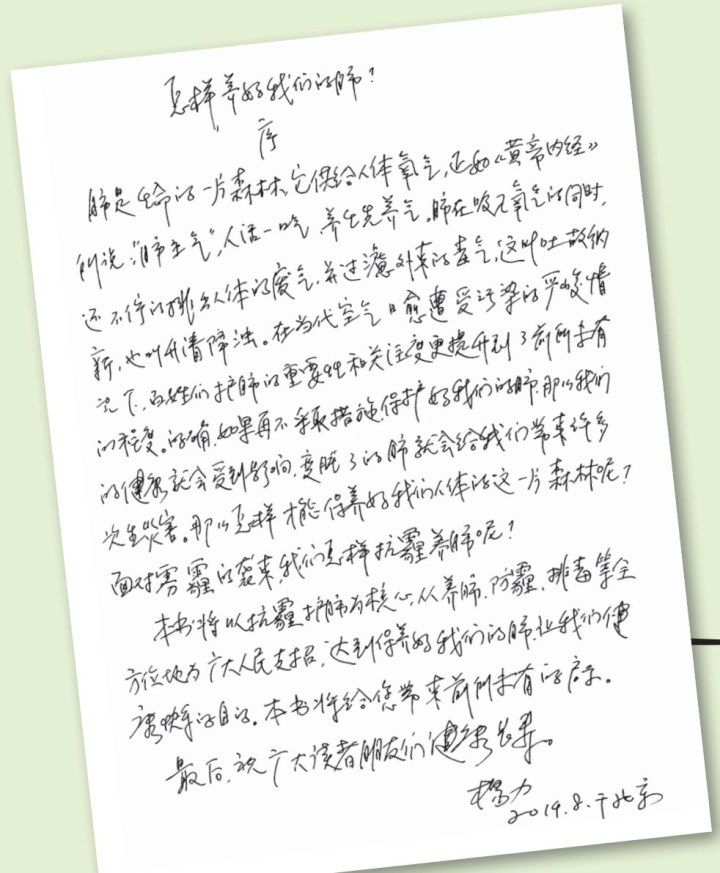 怎样养好我们的肺？
序
肺是生命的一片森林，它供给人体氧气，正如《黄帝内经》
所说：“肺主气”，人活一口气，养生先养气。肺在吸入氧气的同时，
还不停的排出人体的废气，并过滤外来的毒气，这叫吐故纳
新，也叫升清降浊。在当代空气日愈遭受污染的严峻情
况下，百姓们护肺的重要性和关注度更提升到了前所未有
的程度。的确，如果再不采取措施，保护好我们的肺，那么我们
的健康就会受到影响，变脏了的肺就会给我们带来许多
次生灾害。那么怎样才能保养好我们人体的这一片森林呢？
面对雾霾的袭来，我们怎样抗霾养肺呢？
本书将以抗霾护肺为核心，从养肺、防霾、排毒等全
方位地为广大人民支招，达到保养好我们的肺，让我们健
康快乐的目的。本书将给您带来前所未有的启示。
最后，祝广大读者朋友们健康长寿。
杨力
2019.8.于北京